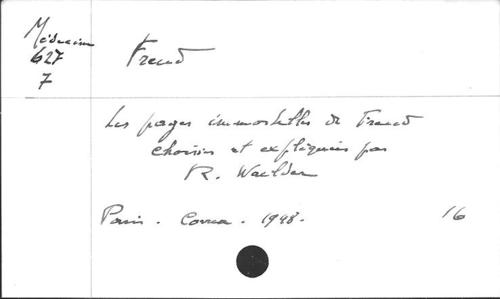 Médecine
627
7
Freud
Les pages immortelles de Freud
choisies et expliquées par
R. Waelder
Paris - Correa - 1948 -
16